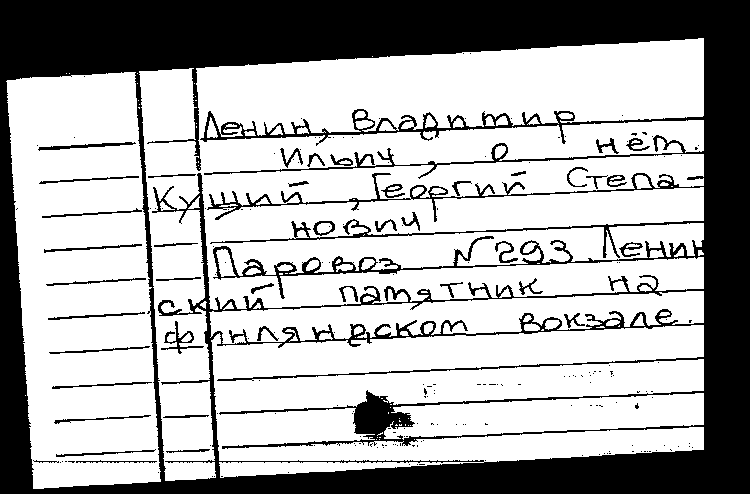 Ленин, Владимир
Ильич, о нём.
Куций, Георгий Степа-
нович
Паровоз №293. Ленин
ский памятник на
финляндском вокзале.